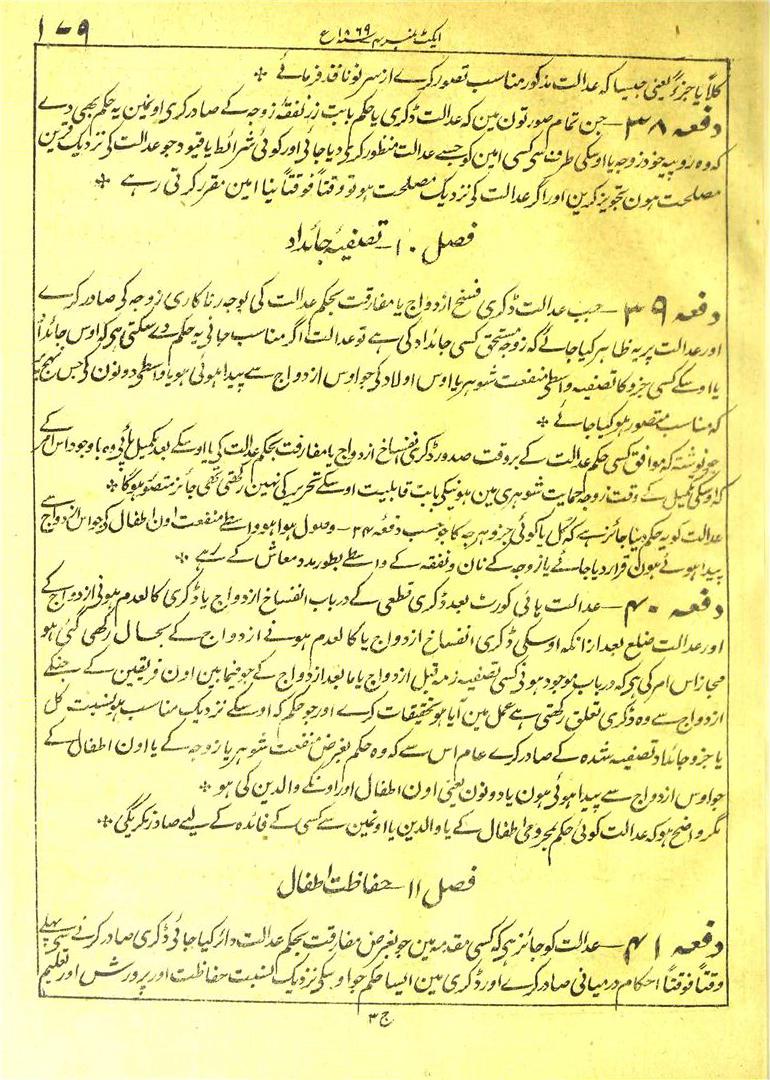 ۱۰۹
ایکٹ نمبر ۴ سنہ ۱۸۶۹ ع
کلاً یا جزءً یعنی جیسا کہ عدالت مذکور مناسب تصور کرے از سر نو نافذ فرمائے *
دفعہ ۳۸ — جن تمام صورتون مین کہ عدالت ڈگری یا حکم بابت زر نفقہ زوجہ کے صادر کری اونمین یہ حکم بھی دے
کہ وہ روپیہ خود زوجہ یا اوسکی طرف سے کسی امین کو جسے عدالت منظور کرے دیا جائی اور کوئی شرائط یا قیود جو عدالت کی نزدیک قرین
مصلحت ہون تجویز کرین اور اگر عدالت کی نزدیک مصلحت ہو تو وقتاً فوقتاً نیا امین مقرر کرتی رہے *
فصل ۱۰ — تصفیہ جائداد
دفعہ ۳۹ — جب عدالت ڈگری فسخ ازدواج یا مفارقت بحکم عدالت کی بوجہ زناکاری زوجہ کی صادر کرے
اور عدالت پر یہ ظاہر کیا جائے کہ زوجہ مستحق کسی جائداد کی ہے تو عدالت اگر مناسب جانی یہ حکم دے سکتی ہی کہ اوس جائداد
یا اوسکے کسی جزو کا تصفیہ واسطی منفعت شوہر یا اوس اولاد کی جو اوس ازدواج سے پیدا ہوئی ہو یا واسطی دونون کی جس نہج پر
کہ مناسب متصور ہو کیا جائے *
جو نوشتہ کہ موافق کسی حکم عدالت کے بروقت صدور ڈگری انفساخ ازدواج یا مفارقت بحکم عدالت کی یا اوسکے بعد تکمیل پائی وہ باوجود اس امر کے
کہ اوسکی تکمیل کے وقت زوجہ حمایت شوہری مین ہونیکی بابت قابلیت اوسکے تحریر کی نہین رکھتی تھی جائز متصور ہوگا *
عدالت کو یہ حکم دینا جائز ہے کہ کل یا کوئی جزو ہرجہ کا جو حسب دفعہ ۳۴ — وصول ہوا ہو واسطے منفعت اون اطفال کی جو اس ازدواج سے
پیدا ہوئے ہون کی قرار دیا جائے یا زوجہ کے نان و نفقہ کے واسطے بطور مدد معاش کے رہے *
دفعہ ۴۰ — عدالت ہائی کورٹ بعد ڈگری قطعی کے درباب انفساخ ازدواج یا ڈگری کالعدم ہونی ازدواج کے
اور عدالت ضلع بعد ازانکہ اوسکی ڈگری انفساخ ازدواج یا کالعدم ہونے ازدواج کے بحال رکھی گئی ہو
مجاز اس امر کی ہی کہ درباب موجود ہونی کسی تصفیہ زمانہ قبل ازدواج یا مابعد ازدواج کے جو فیما بین اون فریقین کے جنکے
ازدواج سے وہ ڈگری تعلق رکھتی ہے عمل مین آیا ہو تحقیقات کرے اور جو حکم کہ اوسکے نزدیک مناسب ہو بنسبت کل
یا جزو جائداد تصفیہ شدہ کے صادر کرے عام اس سے کہ وہ حکم بغرض منفعت شوہر یا زوجہ کے یا اون اطفال کے
جو اوس ازدواج سے پیدا ہوئی ہون یا دونون یعنی اون اطفال اور اونکے والدین کی ہو *
مگر واضح ہو کہ عدالت کوئی حکم بمحرومی اطفال کے یا والدین یا اونمین سے کسی کے فائدہ کے لیے صادر نکریگی *
فصل ۱۱ — حفاظت اطفال
دفعہ ۴۱ — عدالت کو جائز ہی کہ کسی مقدمہ مین جو بغرض مفارقت بحکم عدالت دائر کیا جائی ڈگری صادر کرنے سے پہلے
وقتاً فوقتاً احکام درمیانی صادر کرے اور ڈگری مین ایسا حکم جو اوسکی نزدیک بنسبت حفاظت اور پرورش اور تعلیم
ج ۳